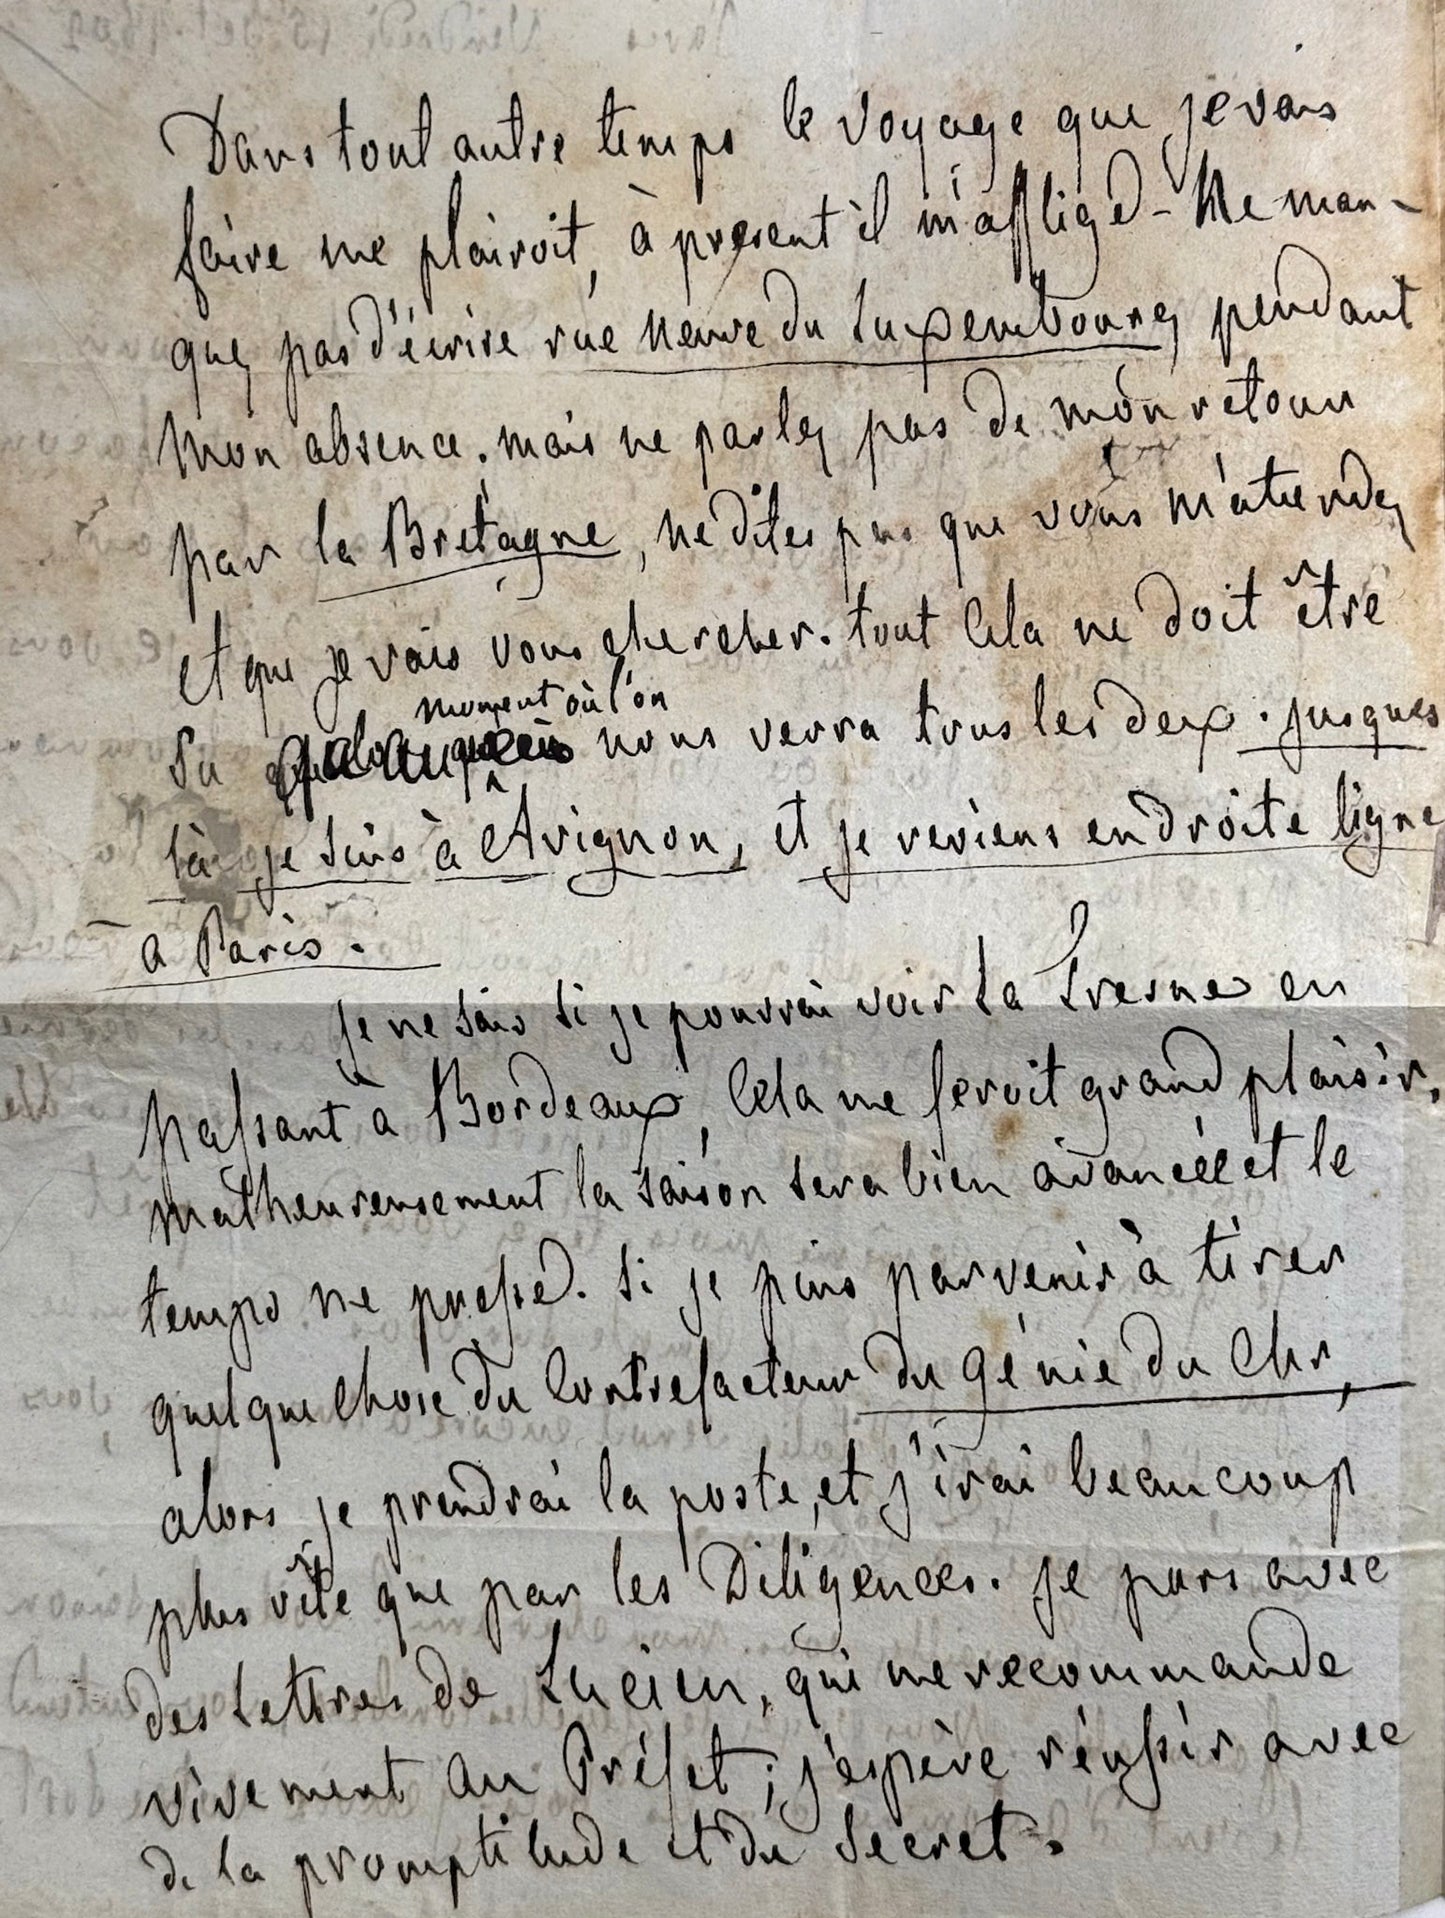 Dans tout autre temps le voyage que je vais
faire me plairoit, à présent il m'afflige - Ne man-
quez pas d'écrire rue neuve du Luxembourg pendant
mon absence. mais ne parlez pas de mon retour
par la Bretagne, ne dites pas que vous m'attendez
et que je vais vous chercher. tout cela ne doit être
moment où l'on
su nous verra tous les deux. jusques
là je suis à Avignon, et je reviens en droite ligne
à Paris.
je ne sais si je pourrai voir La Tresne en
passant à Bordeaux, cela me feroit grand plaisir.
malheureusement la saison sera bien avancée et le
temps me presse. si je puis parvenir à tirer
quelque chose du Contrefacteur du génie du Chr,
alors je prendrai la poste, et j'irai beaucoup
plus vîte que par les Diligences. je pars avec
des Lettres de Lucien, qui me recommande
vivement au Préfet; j'espère réussir avec
de la promptitude et du secret.